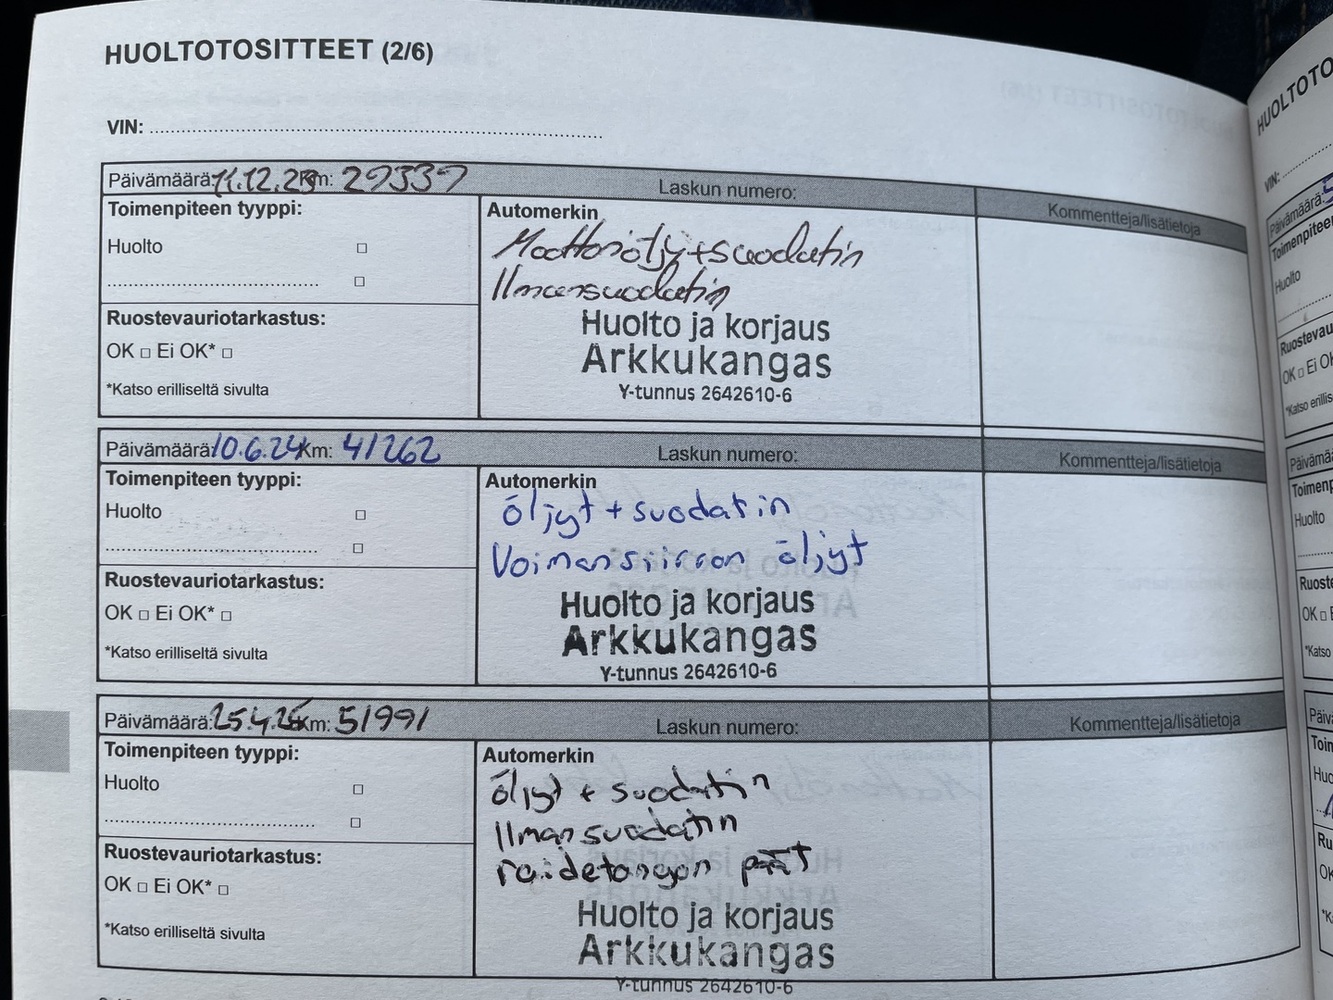 HUOLTOTOSITTEET (2/6)
VIN:
Päivämäärä: 11.12.23 Km: 29339 Laskun numero: Kommentteja/lisätietoja
Toimenpiteen tyyppi:
Automerkin
Huolto
Moottoriöljy+suodatin
Ilmansuodatin
Ruostevauriotarkastus:
OK □ Ei OK* □
*Katso erilliseltä sivulta
Huolto ja korjaus
Arkkukangas
Y-tunnus 2642610-6
Päivämäärä: 10.6.24 Km: 41262 Laskun numero: Kommentteja/lisätietoja
Toimenpiteen tyyppi:
Automerkin
Huolto
öljyt + suodatin
Voimansiirron öljyt
Ruostevauriotarkastus:
OK □ Ei OK* □
*Katso erilliseltä sivulta
Huolto ja korjaus
Arkkukangas
Y-tunnus 2642610-6
Päivämäärä: 25.4.25 Km: 51991 Laskun numero: Kommentteja/lisätietoja
Toimenpiteen tyyppi:
Automerkin
Huolto
öljyt + suodatin
Ilmansuodatin
raidetangon päät
Ruostevauriotarkastus:
OK □ Ei OK* □
*Katso erilliseltä sivulta
Huolto ja korjaus
Arkkukangas
Y-tunnus 2642610-6
VIN:
Päivämäärä:
Huolto
OK □ Ei
Huolto
OK □
*Katso